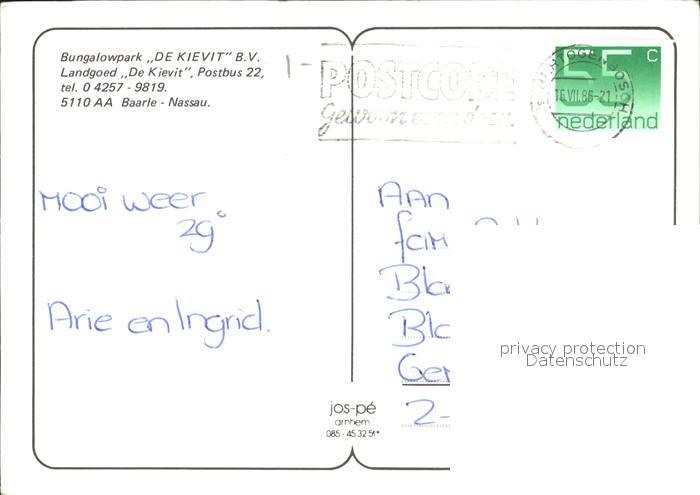 Bungalowpark „DE KIEVIT" B.V.
Landgoed „De Kievit", Postbus 22,
tel. 0 4257 - 9819.
5110 AA Baarle - Nassau.
POSTCODE
Gewoon even doen
55 C
nederland
16.VII.86-21
Mooi weer
29°
Arie en Ingrid.
Aan
fam
jos-pé
arnhem
085 - 45 32 51*
privacy protection
Datenschutz